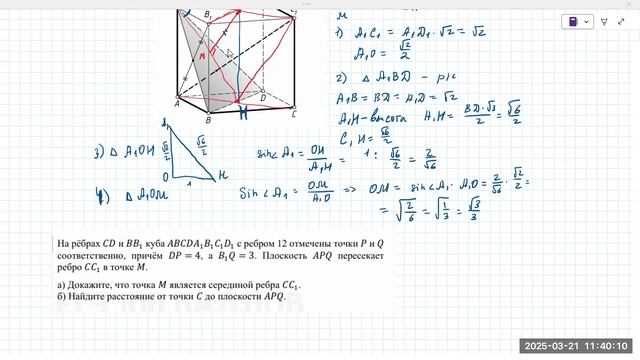 M
B₁
1) A₁C₁ = A₁D₁ · √2 = √2
A₁O = √2/2
M
2) △ A₁BD – р/с
A₁B = BD = A₁D = √2
A₁H – высота A₁H = BD·√3/2 = √6/2
A D
B H C
3) △ A₁OH
A₁ √2/2 √6/2 O 1 H
sin∠A₁ = OH/A₁H = 1 : √6/2 = 2/√6
4) △ A₁OM
Sin∠A₁ = OM/A₁O => OM = sin∠A₁ · A₁O = 2/√6 · √2/2 =
= √(2/6) = √(1/3) = √3/3
На рёбрах CD и BB₁ куба ABCDA₁B₁C₁D₁ с ребром 12 отмечены точки P и Q
соответственно, причём DP = 4, а B₁Q = 3. Плоскость APQ пересекает
ребро CC₁ в точке M.
а) Докажите, что точка M является серединой ребра CC₁.
б) Найдите расстояние от точки C до плоскости APQ.
2025-03-21 11:40:10